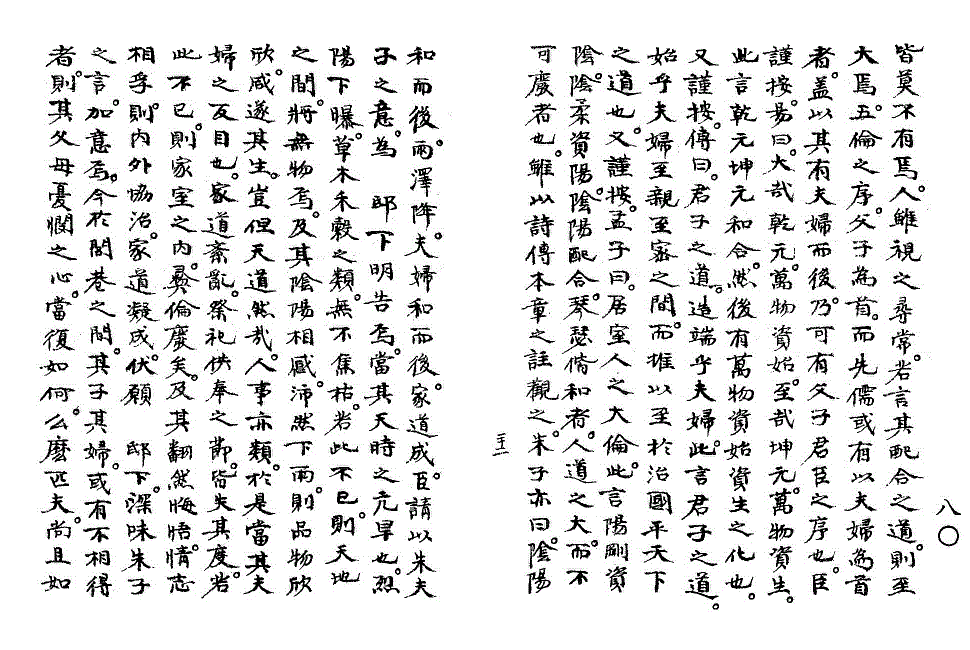 八〇
皆莫不有焉。人雖視之尋常。若言其配合之道。則至
大焉。五倫之序。父子為首。而先儒或有以夫婦為首
者。蓋以其有夫婦而後。乃可有父子君臣之序也。臣
謹按。易曰。大哉乾元。萬物資始。至哉坤元。萬物資生。
此言乾元坤元和合。然後有萬物資始資生之化也。
又謹按。傳曰。君子之道。造端乎夫婦。此言君子之道。
始乎夫婦至親至密之間。而推以至於治國平天下
之道也。又謹按。孟子曰。居室人之大倫。此言陽剛資
陰。陰柔資陽。陰陽配合。琴瑟偕和者。人道之大。而不
可廢者也。雖以詩傳本章之註觀之。朱子亦曰。陰陽
三十二
和而後。雨澤降。夫婦和而後。家道成。臣請以朱夫
子之意。為 邸下明告焉。當其天時之亢旱也。烈
陽下曝。草木禾穀之類。無不焦枯。若此不已。則天地
之間。將無物焉。及其陰陽相感。沛然下雨。則品物欣
欣。咸遂其生。豈但天道然哉。人事亦類。於是當其夫
婦之反目也。家道紊亂。祭祀供奉之節。皆失其度。若
此不已。則家室之內。彝倫廢矣。及其翻然悔悟。情志
相孚。則內外協洽。家道凝成。伏願 邸下。深味朱子
之言。加意焉。今於閭巷之間。其子其婦。或有不相得
者。則其父母憂憫之心。當復如何。么麼匹夫。尚且如